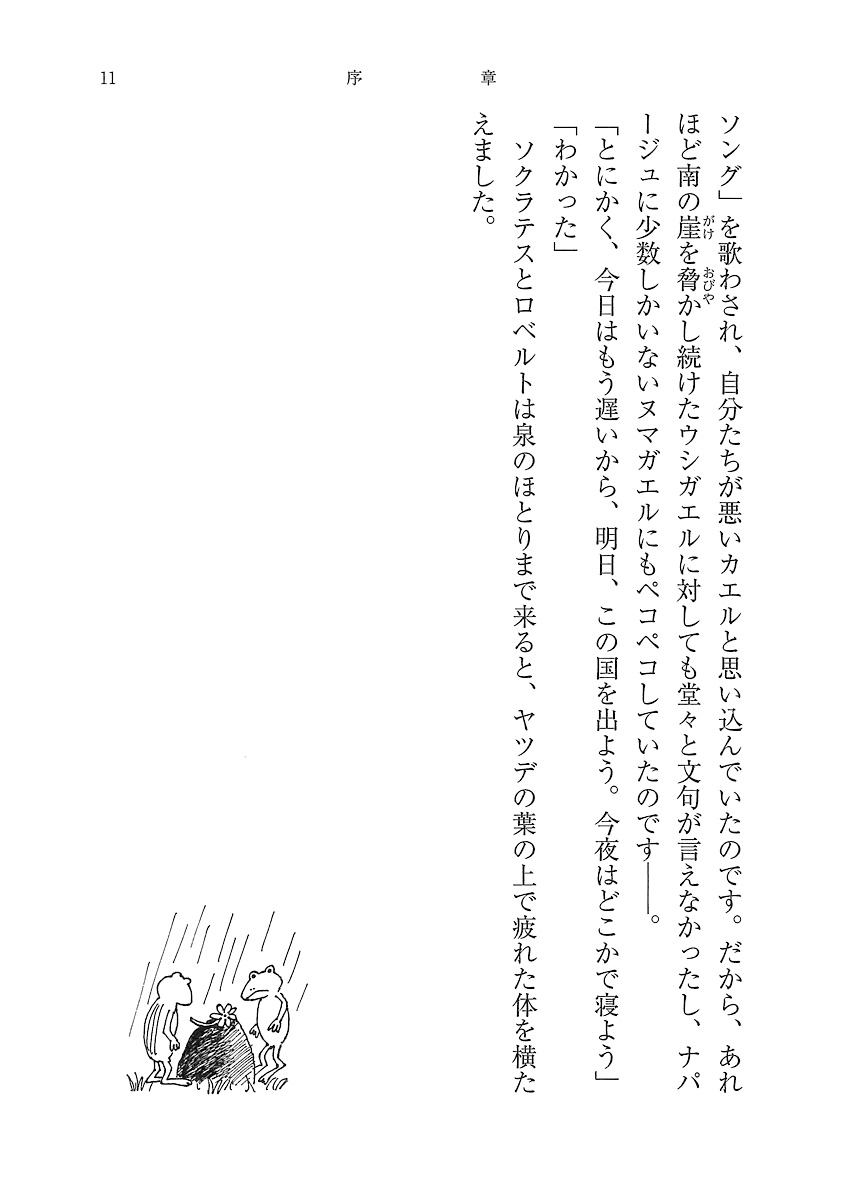 11
序章
ソング」を歌わされ、自分たちが悪いカエルと思い込んでいたのです。だから、あれ
ほど南の崖を脅かし続けたウシガエルに対しても堂々と文句が言えなかったし、ナパ
ージュに少数しかいないヌマガエルにもペコペコしていたのです――。
「とにかく、今日はもう遅いから、明日、この国を出よう。今夜はどこかで寝よう」
「わかった」
ソクラテスとロベルトは泉のほとりまで来ると、ヤツデの葉の上で疲れた体を横た
えました。
がけ
おびや